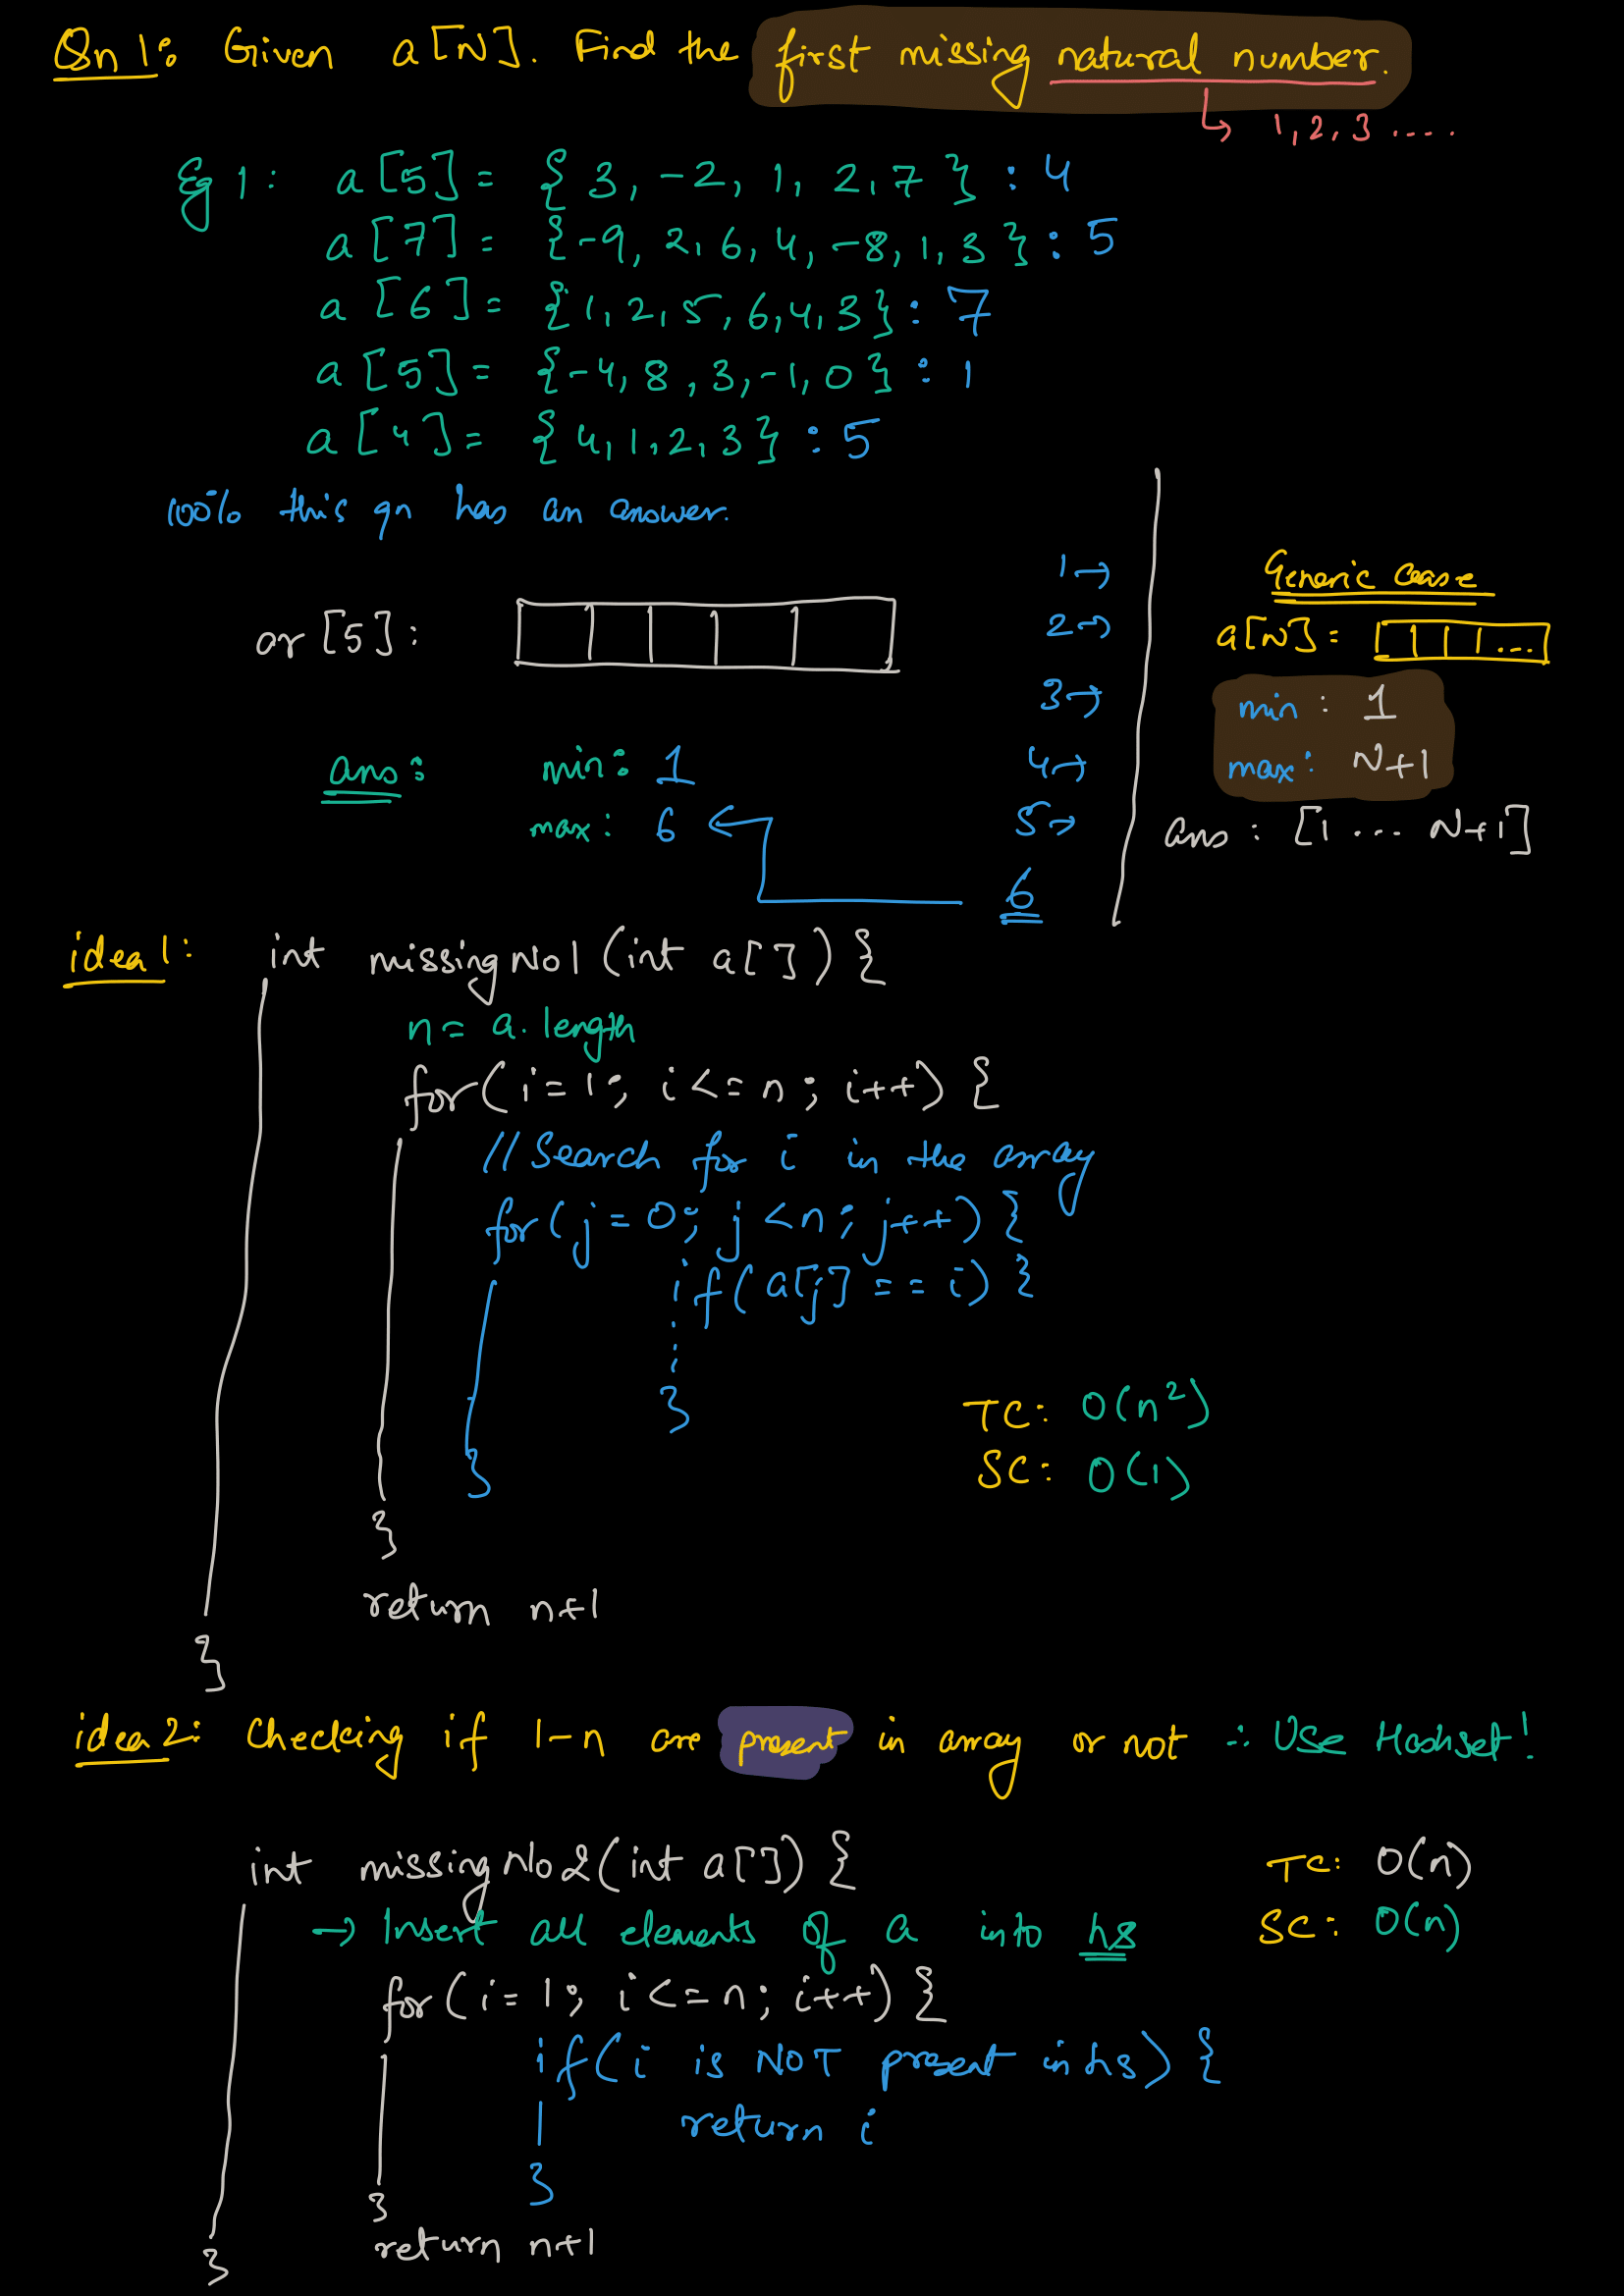 Qn 1: Given a[N]. Find the first missing natural number.
↳ 1, 2, 3 ....
Eg 1: a[5] = {3, -2, 1, 2, 7} : 4
a[7] = {-9, 2, 6, 4, -8, 1, 3} : 5
a[6] = {1, 2, 5, 6, 4, 3} : 7
a[5] = {-4, 8, 3, -1, 0} : 1
a[4] = {4, 1, 2, 3} : 5
100% this qn has an answer.
ar[5]:
ans: min: 1
max: 6
1 →
2 →
3 →
4 →
5 →
6
Generic case
a[N] = ...
min : 1
max : N+1
ans : [1 ... N+1]
idea 1: int missingNo1 (int a[]) {
n = a.length
for (i = 1; i <= n; i++) {
// Search for i in the array
for (j = 0; j < n; j++) {
if (a[j] == i) {
}
}
TC: O(n²)
SC: O(1)
}
return n+1
}
idea 2: Checking if 1-n are present in array or not ∴ Use Hashset!
int missingNo2 (int a[]) {
→ Insert all elements of a into hs
for (i = 1; i <= n; i++) {
if (i is NOT present in hs) {
return i
}
}
return n+1
}
TC: O(n)
SC: O(n)